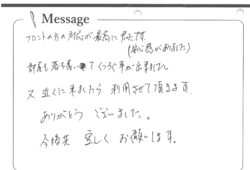 Message
フロントの方の対応が最高に良かったです
(安心感がありました)
部屋も落ち着いてくつろぐ事が出来ました
又近くに来ましたら利用させて頂きます
ありがとうございました。
今後共宜しくお願いします。